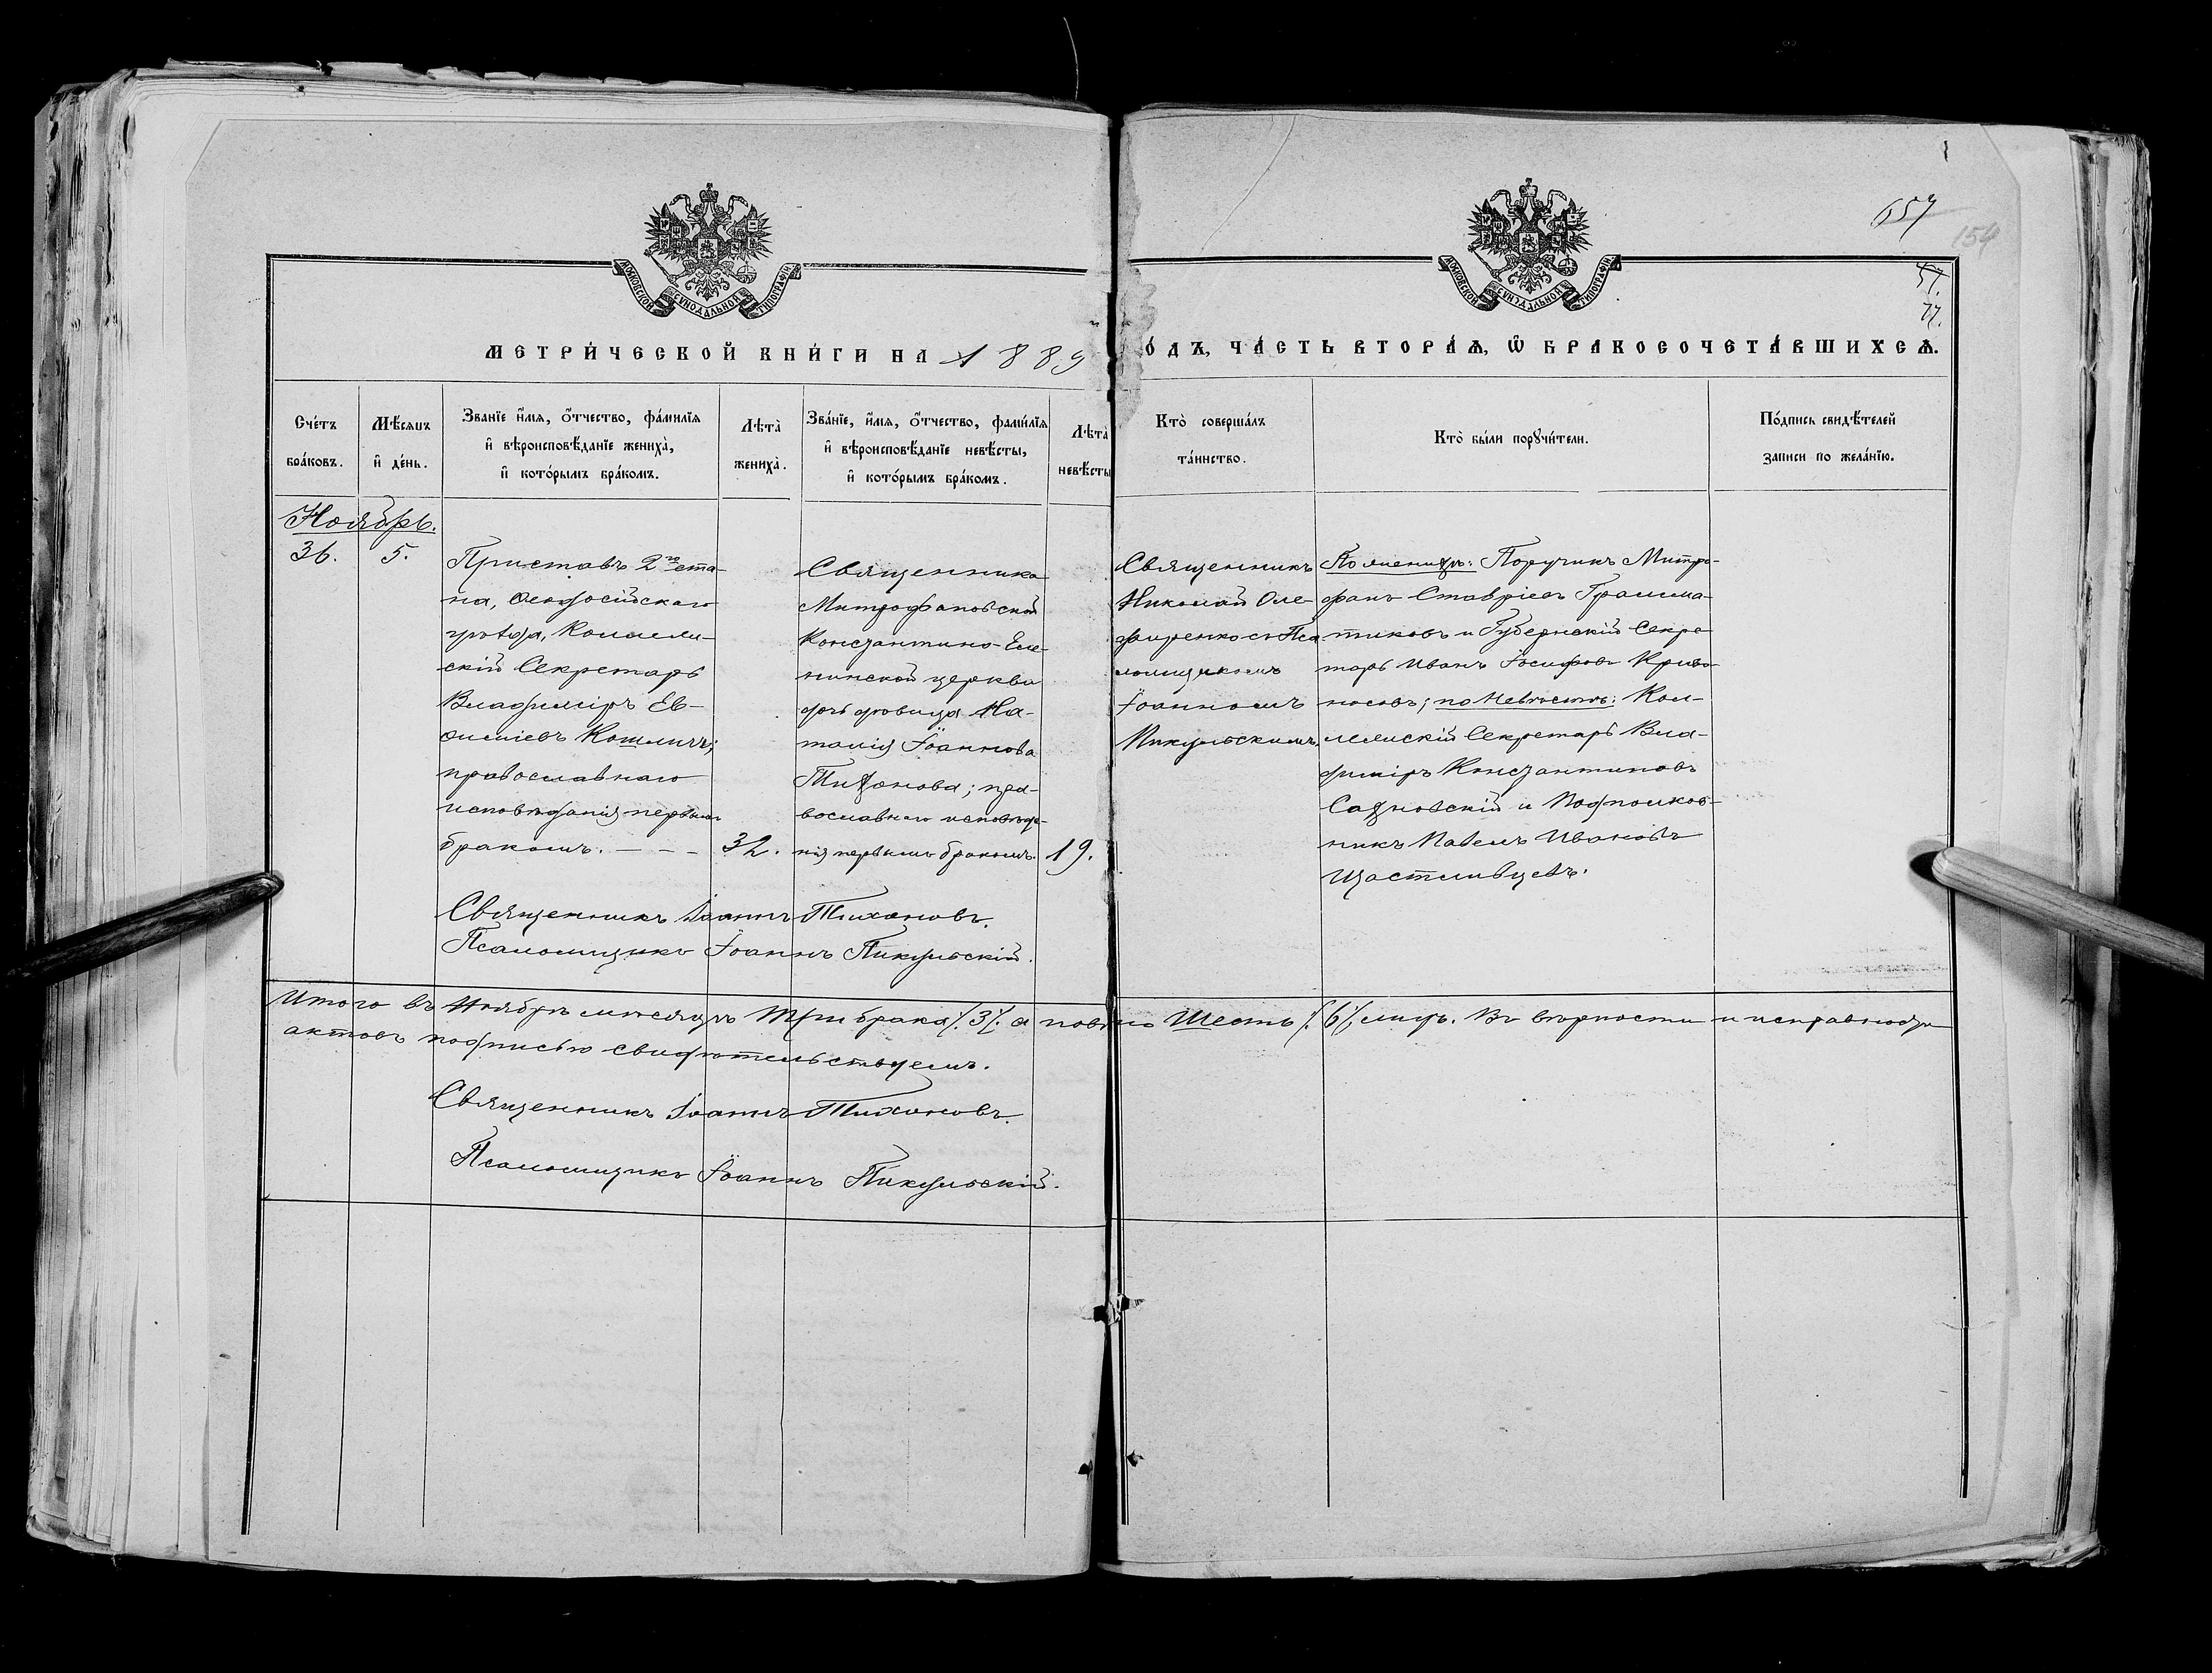 657
154
57.
77.
МОСКОВСКОЙ СѴНОДАЛЬНОЙ ТИПОГРАФІИ
МОСКОВСКОЙ СѴНОДАЛЬНОЙ ТИПОГРАФІИ
МЕТРИ́ЧЕСКОЙ КНИ́ГИ НА 1889
О́ДЪ, ЧА́СТЬ ВТОРА́Ѧ, Ѿ БРАКОСОЧЕТА́ВШИХСѦ.
Сче́тъ
бра́ковъ.
Мѣ́сяцъ
и҆ де́нь.
Званїе и҆́мѧ, ѻ҆́тчество, фамилїѧ
и҆ вѣроисповѣ́данїе жениха̀,
и҆ кото́рымъ бра́комъ.
Лѣта̀
жениха̀.
Зва́нїе, и҆́мѧ, ѻ҆́тчество, фами́лїѧ
и҆ вѣроисповѣ́данїе невѣ́сты,
и҆ кото́рымъ бра́комъ.
Лѣта̀
невѣ́сты
Кто̀ соверша́лъ
та́инство.
Кто̀ бы́ли порꙋчи́тели.
По́дпись свидѣ́телей
записи по жела́нїю.
Ноябрь.
36.
5.
Приставъ 2го ста-
на, Ѳеодосійскаго
уѣзда, Коллеж-
скій Секретарь
Владиміръ Ев-
ѳиміевъ Кошличъ;
православнаго
исповѣданія первымъ
бракомъ. — — —
32.
Священника
Митрофановской
Константино-Еле-
нинской церкви
дочь дѣвица На-
талія Іоаннова
Тиханова; пра-
вославнаго исповѣда-
нія первымъ бракомъ.
19.
Священникъ
Николай Оле-
фиренко съ Пса
ломщикомъ
Іоанномъ
Пикульскимъ.
По женихѣ: Поручикъ Митро-
фанъ Ставріевъ Грамма-
тиковъ и Губернскій Секре
тарь Иванъ Іосифовъ Криво-
носовъ; по невѣстѣ: Кол-
лежскій Секретарь Вла-
диміръ Константиновъ
Садновскій и Подполков-
никъ Павелъ Ивановъ
Щастливцевъ.
Священникъ Іоаннъ Тихановъ.
Псаломщикъ Іоаннъ Пикульскій.
Итого въ Ноябрѣ мѣсяцѣ три брака /.3/. а повѣнчано Шесть /.6/. лицъ. Въ вѣрности и исправности
актовъ подписью свидѣтельствуемъ.
Священникъ Іоаннъ Тихановъ.
Псаломщикъ Іоаннъ Пикульскій.